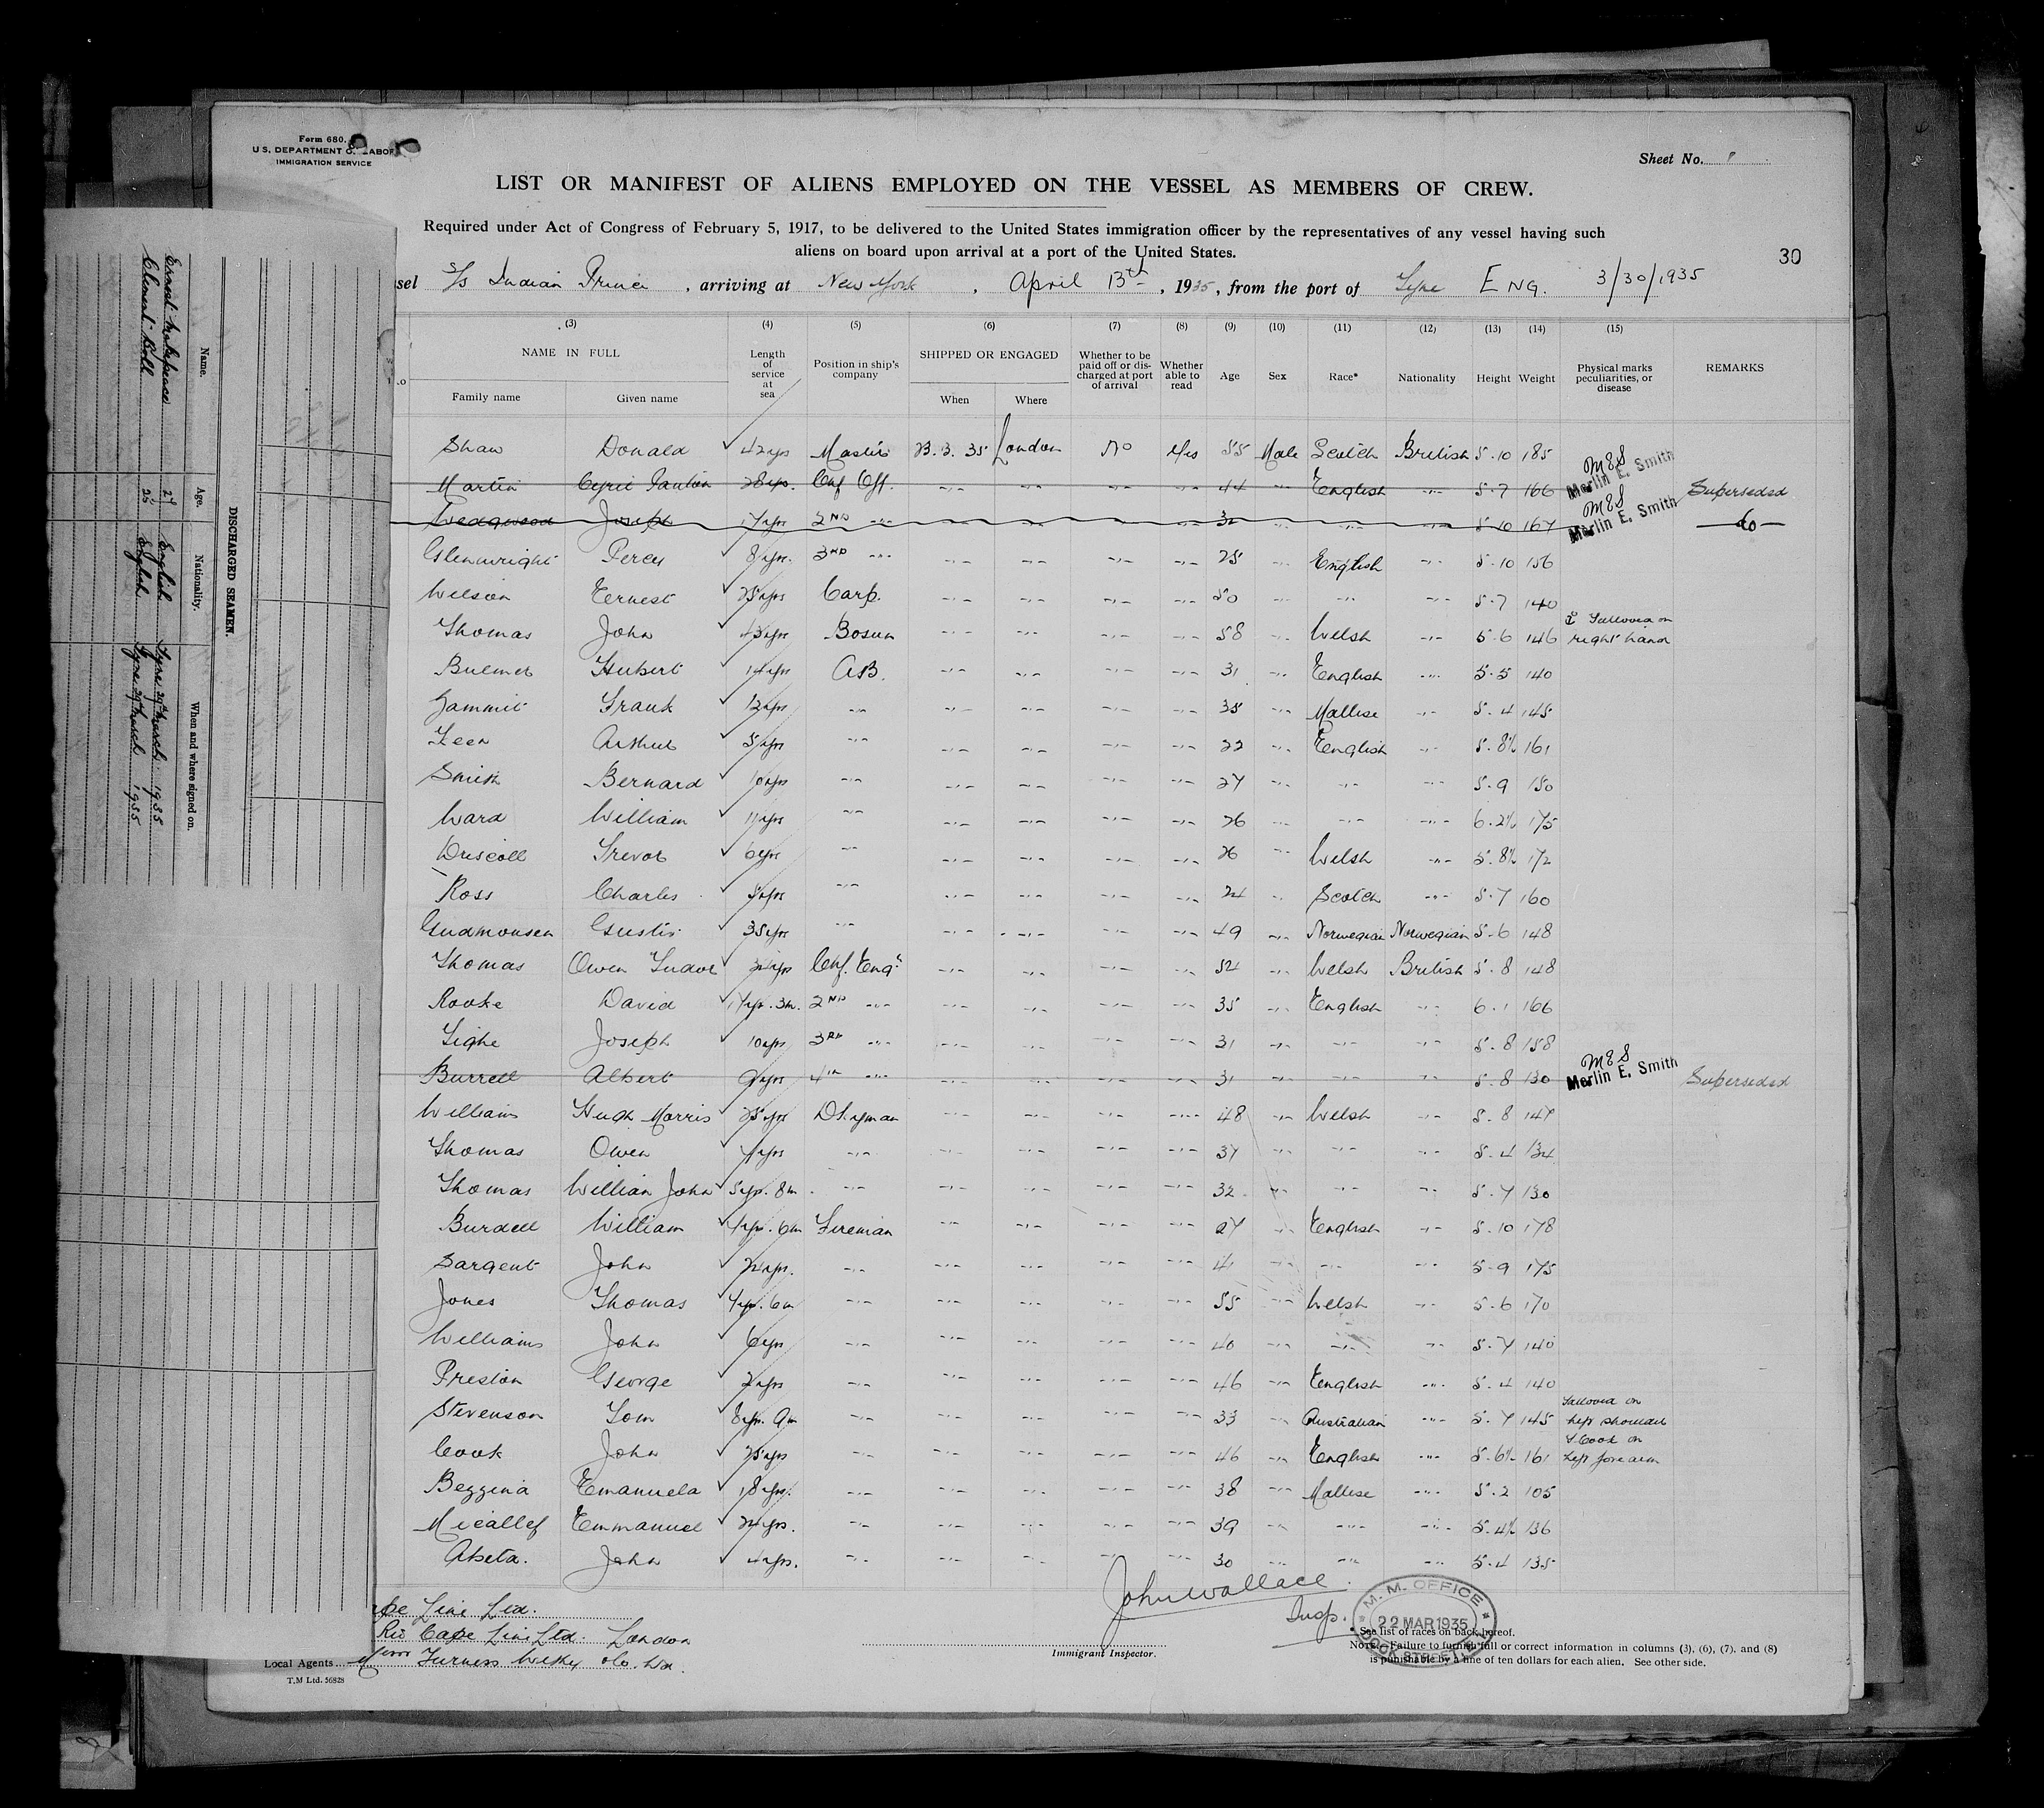 Form 680.
U.S. DEPARTMENT O. LABOR
IMMIGRATION SERVICE
Sheet No.
LIST OR MANIFEST OF ALIENS EMPLOYED ON THE VESSEL AS MEMBERS OF CREW.
Required under Act of Congress of February 5, 1917, to be delivered to the United States immigration officer by the representatives of any vessel having such
aliens on board upon arrival at a port of the United States.
30
sel S/s Indian Prince, arriving at New York, April 13th, 1935, from the port of Tyne ENG. 3/30/1935
(3) (4) (5) (6) (7) (8) (9) (10) (11) (12) (13) (14) (15)
NAME IN FULL Length of service at sea Position in ship's company SHIPPED OR ENGAGED Whether to be paid off or discharged at port of arrival Whether able to read Age Sex Race* Nationality Height Weight Physical marks peculiarities, or disease REMARKS
Family name Given name When Where
Shaw Donald 42 yrs Master 13. 3. 35 London No Yes 55 Male Scotch British 5. 10 185 MES
Merlin E. Smith
Martin Cyril 28 yrs. Chf Off. 44 English 5. 7 166 Superseded
MES
Merlin E. Smith
Wedgwood Joseph 17 yrs 2ND 32 5 10 167 do
Glenwright Percy 8 yrs. 3RD 25 English 5. 10 156
Wilson Ernest 25 yrs Carp. 50 5. 7 140
Thomas John 43 yrs Bosun 58 Welsh 5. 6 146 right hand
Bulmer Hubert 14 yrs AB. 31 English 5. 5 140
Zammit Frank 12 yrs 35 Maltese 5. 4 145
Leen Arthur 5 yrs 22 English 5. 8½ 161
Smith Bernard 10 yrs 27 5. 9 150
Ward William 11 yrs 26 6. 2½ 175
Driscoll Trevor 6 yrs 26 Welsh 5. 8½ 172
Ross Charles 5 yrs 24 Scotch 5. 7 160
Gudmonsen Gustiv 35 yrs 49 Norwegian Norwegian 5. 6 148
Thomas Owen Tudor Chf. Engr 52 Welsh British 5. 8 148
Rooke David 17 yrs. 3m. 2ND 35 English 6. 1 166
Tighe Joseph 10 yrs 3RD 31 5. 8 158
MES
Merlin E. Smith
Burrell Albert 9 yrs 4th 31 5. 8 130 Superseded
Williams Hugh Morris 25 yrs Dkyman 48 Welsh 5. 8 147
Thomas Owen 37 5. 4 134
Thomas William John 5 yrs. 8m. 32 5. 7 130
Burdell William 6m Fireman 27 English 5. 10 178
Sargent John 41 5. 9 175
Jones Thomas 6m 55 Welsh 5. 6 170
Williams John 6 yrs 40 5. 7 140
Preston George 46 English 5. 4 140
Stevenson Tom 8 yrs. 9m 33 Australian 5. 7 145 left shoulder
Cook John 25 yrs 46 English 5. 6½ 161 J. Cook on left forearm
Bezzina Emanuela 18 yrs. 38 Maltese 5. 2 105
Micallef Emmanuel 24 yrs. 39 5. 4½ 136
Abeta. John 4 yrs. 30 5. 4 135
John Wallace.
Insp.
Immigrant Inspector.
M. M. OFFICE
22 MAR 1935
DOCK STREET
* See list of races on back hereof.
NOTE.—Failure to furnish full or correct information in columns (3), (6), (7), and (8)
is punishable by a fine of ten dollars for each alien. See other side.
Cape Line Ltd.
Rio Cape Line Ltd. London
Local Agents Messrs Furness Withy & Co. Ltd.
T.M Ltd. 56828
DISCHARGED SEAMEN.
Name. Age. Nationality. When and where signed on.
Ernest Makepeace 27 English Tyne 29th March. 1935
Clement Bell 25 English Tyne 29th March 1935